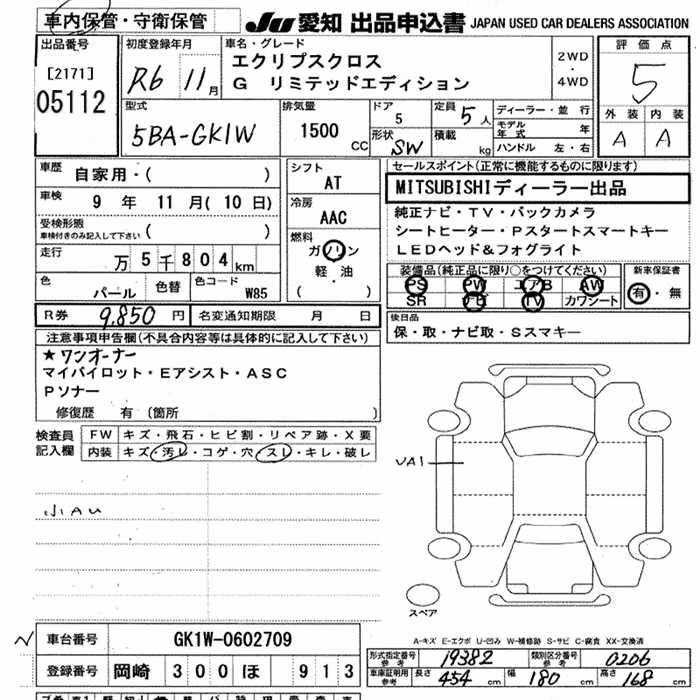 車内保管・守衛保管 JU 愛知 出品申込書 JAPAN USED CAR DEALERS ASSOCIATION
出品番号
[2171]
05112
初度登録年月
R6 11月
車名・グレード
エクリプスクロス
G リミテッドエディション
2WD
・
4WD
評価点
5
外装 内装
A A
型式
5BA-GK1W
排気量
1500
CC
ドア
5
形状
SW
定員
5人
積載
kg
ディーラー・並行
モデル年式 年
ハンドル 左・右
車歴
自家用・( )
車検
9 年 11 月 ( 10 日)
受検形態
車検付きのみ記入して下さい ( )
走行
万 5 千 804 km
色
パール
色替
色コード
W85
シフト
AT
冷房
AAC
燃料
ガソリン
軽・油
( )
セールスポイント(正常に機能するものに限ります)
MITSUBISHIディーラー出品
純正ナビ・TV・バックカメラ
シートヒーター・Pスタートスマートキー
LEDヘッド&フォグライト
装備品(純正品に限り○をつけてください)
PS PW エアB AW
SR ナビ TV カワシート
新車保証書
有・無
R券 9,850 円 名変通知期限 月 日
後日品
保・取・ナビ取・Sスマキー
注意事項申告欄(不具合内容等は具体的に記入して下さい)
★ワンオーナー
マイパイロット・Eアシスト・ASC
Pソナー
修復歴 有 (箇所 )
検査員
記入欄
FW キズ・飛石・ヒビ割・リペア跡・X要
内装 キズ・汚レ・コゲ・穴・スレ・キレ・破レ
UA1
スペア
A-キズ E-エクボ U-凹み W-補修跡 S-サビ C-腐食 XX-交換済
車台番号 GK1W-0602709
登録番号 岡崎 300 ほ 913
形式指定番号
参考
19382
類別区分番号
参考
0206
車庫証明用
参考
長さ 454 cm 幅 180 cm 高さ 168 cm